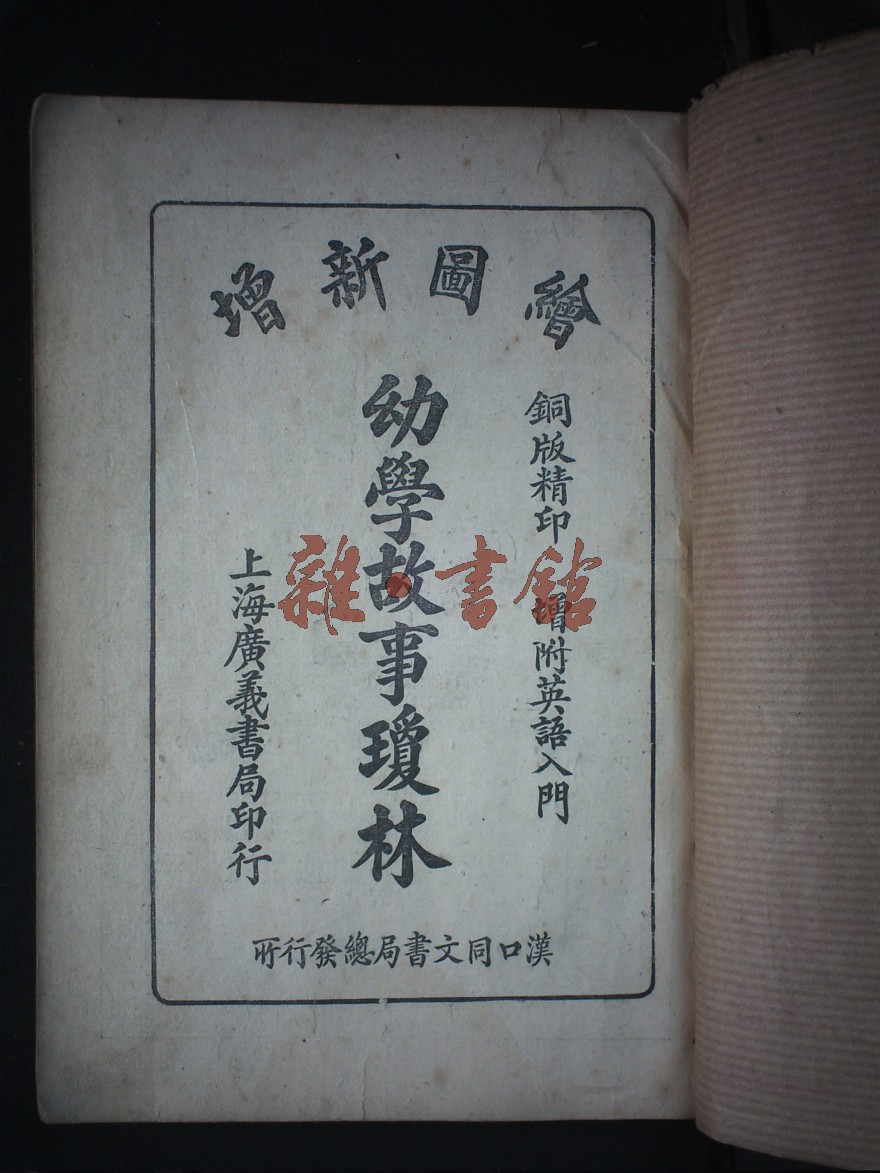 繪圖新增
銅版精印 增附英語入門
幼學故事瓊林
上海廣義書局印行
漢口同文書局總發行所
雜·書館